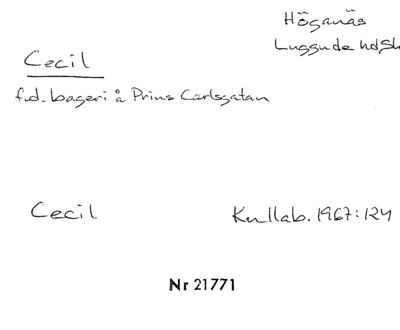 Höganäs
Luggude hdSk
Cecil
f.d. bageri å Prins Carlsgatan
Cecil
Kullab. 1967:124
Nr 21771